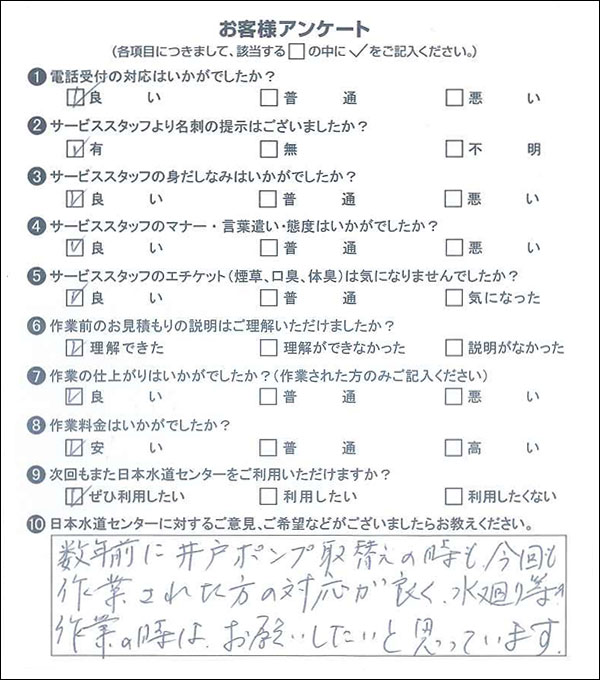 お客様アンケート
(各項目につきまして、該当する□の中に✓をご記入ください。)
❶電話受付の対応はいかがでしたか?
☑良 い □普 通 □悪 い
❷サービススタッフより名刺の提示はございましたか?
☑有 □無 □不 明
❸サービススタッフの身だしなみはいかがでしたか?
☑良 い □普 通 □悪 い
❹サービススタッフのマナー・言葉遣い・態度はいかがでしたか?
☑良 い □普 通 □悪 い
❺サービススタッフのエチケット(煙草、口臭、体臭)は気になりませんでしたか?
☑良 い □普 通 □気になった
❻作業前のお見積もりの説明はご理解いただけましたか?
☑理解できた □理解ができなかった □説明がなかった
❼作業の仕上がりはいかがでしたか?(作業された方のみご記入ください)
☑良 い □普 通 □悪 い
❽作業料金はいかがでしたか?
☑安 い □普 通 □高 い
❾次回もまた日本水道センターをご利用いただけますか?
☑ぜひ利用したい □利用したい □利用したくない
❿日本水道センターに対するご意見、ご希望などがございましたらお教えください。
数年前に井戸ポンプ取替えの時も、今回も
作業された方の対応が良く、水廻り等の
作業の時は、お願いしたいと思っています。